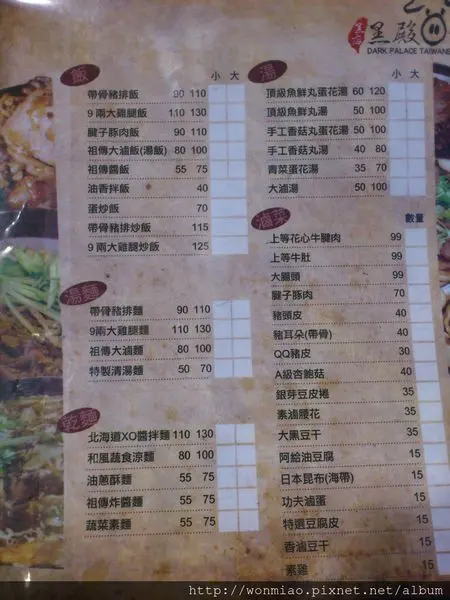 黑殿
DARK PALACE TAIWANESE
飯
小 大
帶骨豬排飯 90 110
9兩大雞腿飯 110 130
腱子豚肉飯 90 110
祖傳大滷飯(湯飯) 80 100
祖傳醬飯 55 75
油香拌飯 40
蛋炒飯 70
帶骨豬排炒飯 115
9兩大雞腿炒飯 125
湯麵
帶骨豬排麵 90 110
9兩大雞腿麵 110 130
祖傳大滷麵 80 100
特製清湯麵 50 70
乾麵
北海道XO醬拌麵 110 130
和風蔬食涼麵 80 100
油蔥酥麵 55 75
祖傳炸醬麵 55 75
蔬菜素麵 55 75
湯
小 大
頂級魚鮮丸蛋花湯 60 120
頂級魚鮮丸湯 50 100
手工香菇丸蛋花湯 50 100
手工香菇丸湯 40 80
青菜蛋花湯 35 70
大滷湯 50 100
滷菜
數量
上等花心牛腱肉 99
上等牛肚 99
大腸頭 99
腱子豚肉 70
豬頭皮 40
豬耳朵(帶骨) 40
QQ豬皮 30
A級杏鮑菇 40
銀芽豆皮捲 35
素滷腰花 35
大黑豆干 35
阿給油豆腐 15
日本昆布(海帶) 15
功夫滷蛋 15
特選豆腐皮 15
香滷豆干 15
素雞 15
http://wonmiao.pixnet.net/album